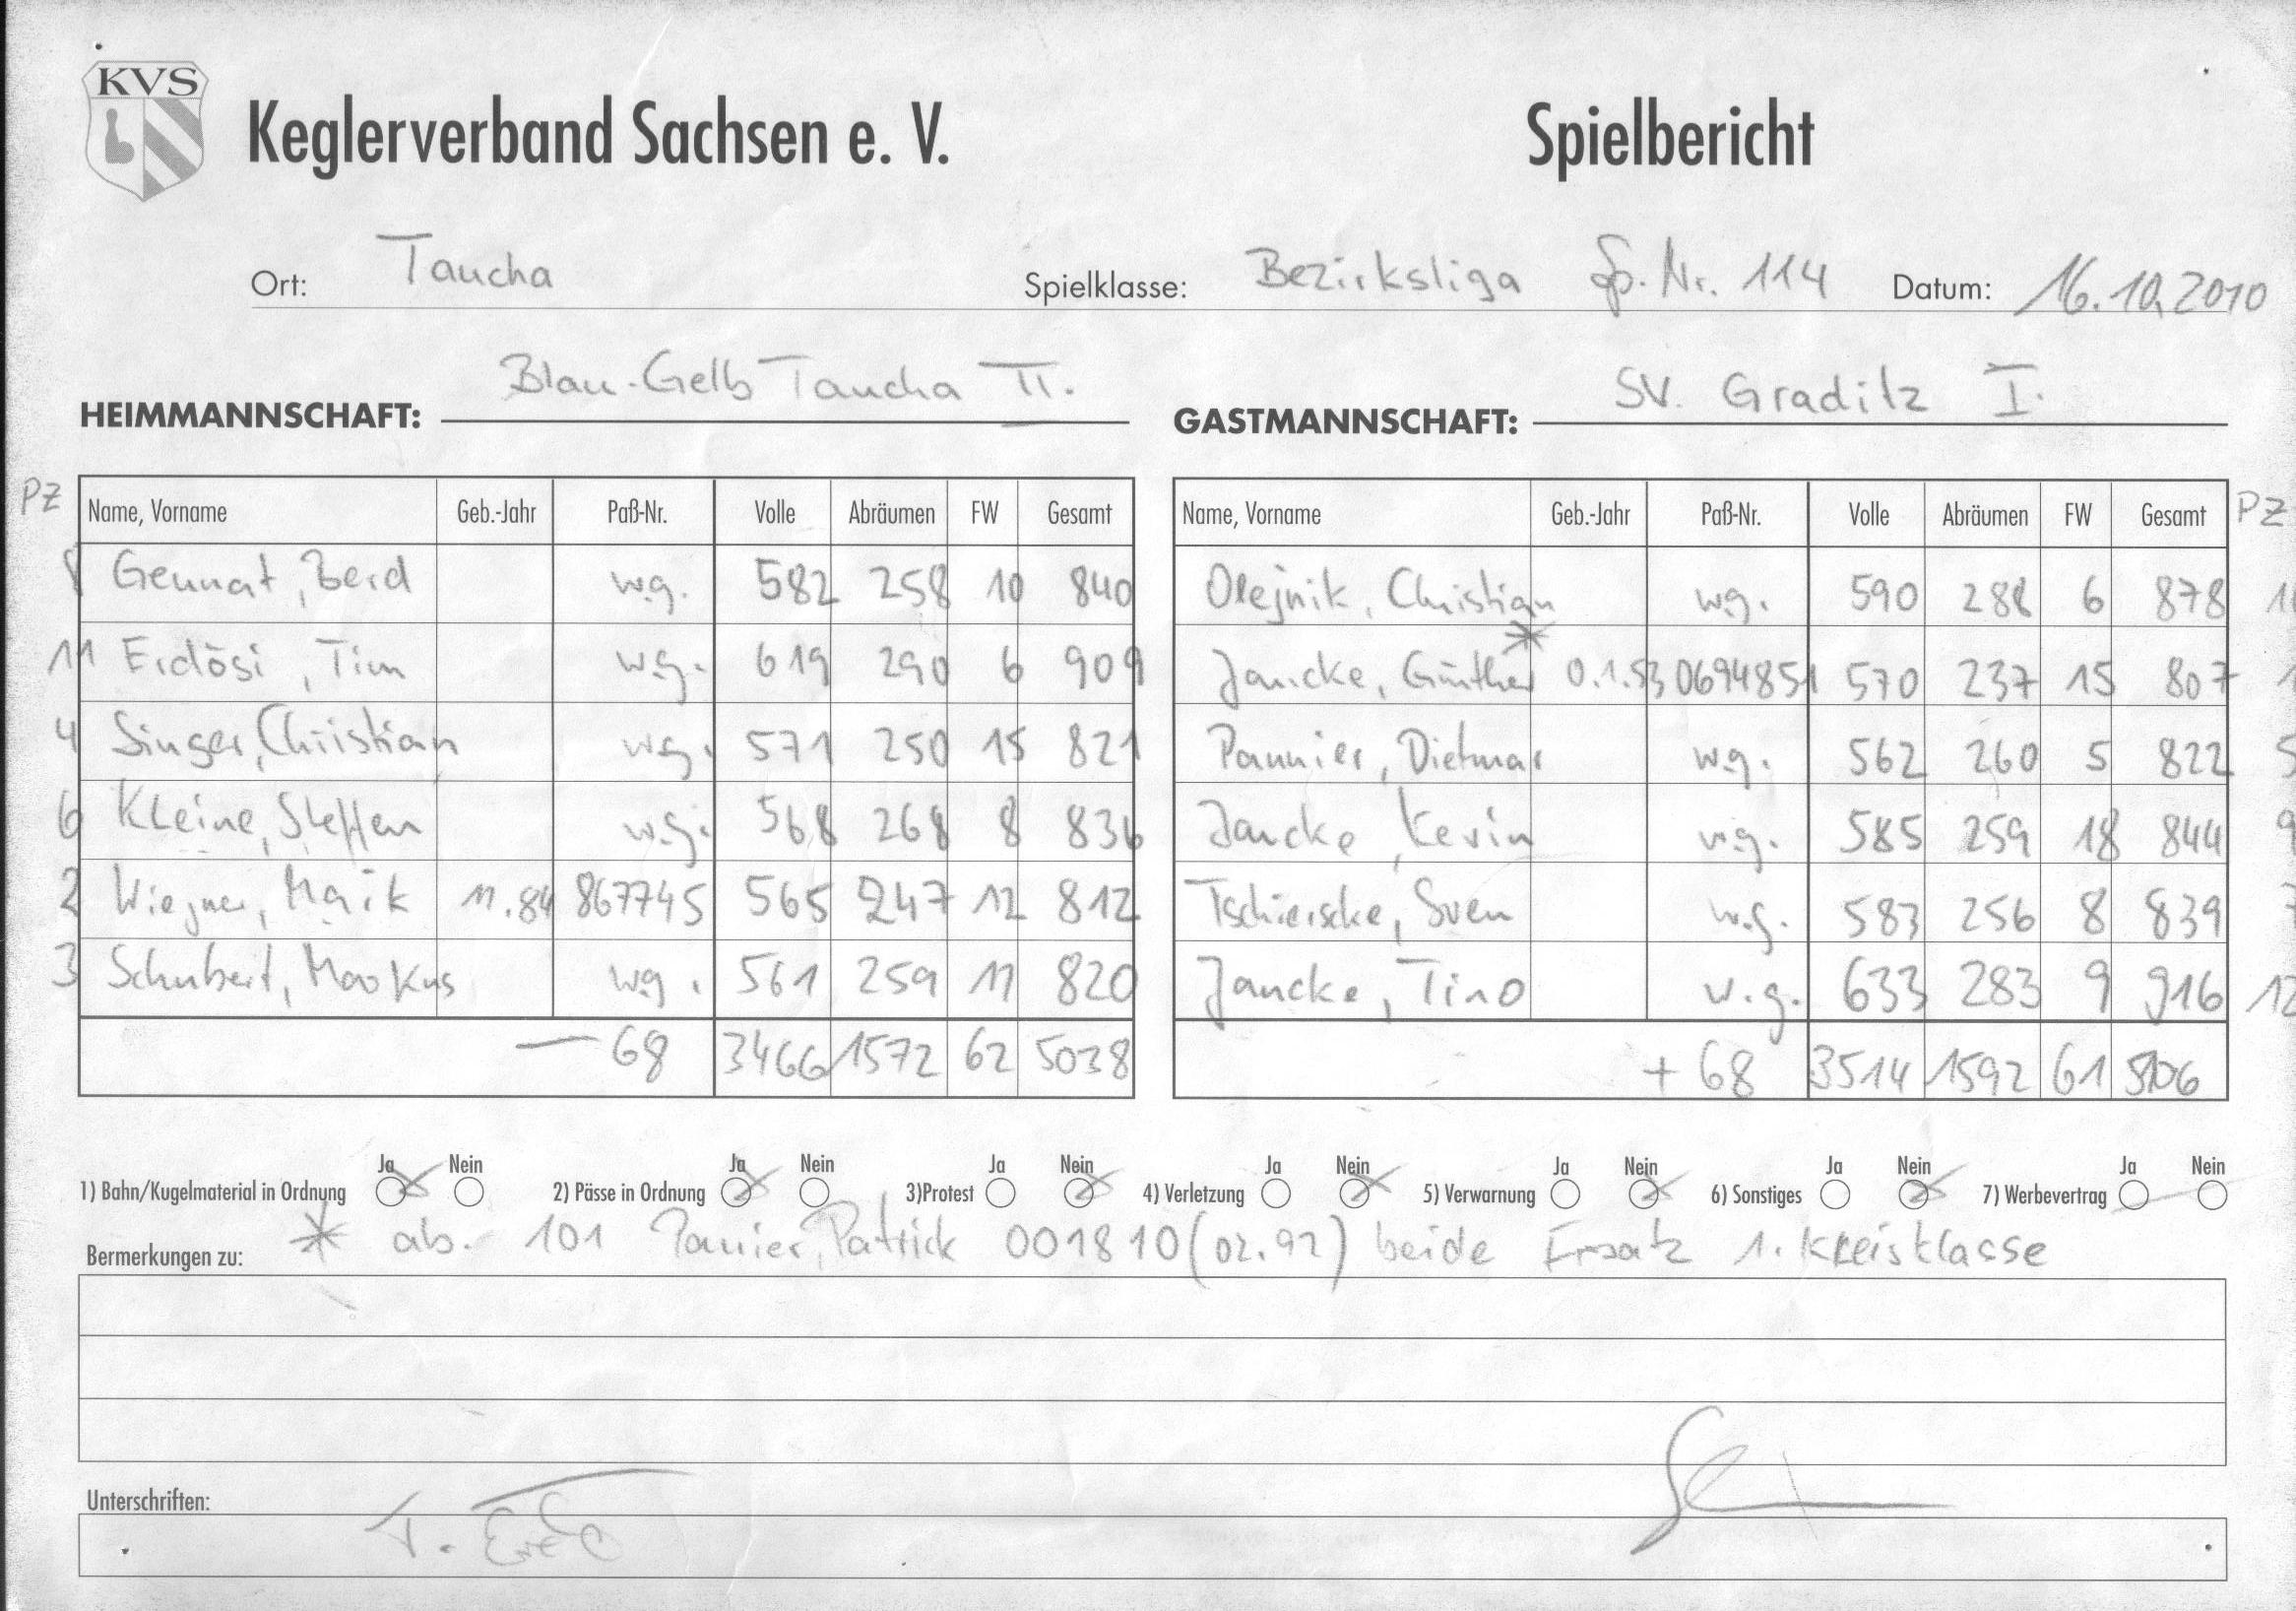 KVS
Keglerverband Sachsen e. V. Spielbericht
Ort: Taucha Spielklasse: Bezirksliga Sp. Nr. 114 Datum: 16.10.2010
HEIMMANNSCHAFT: Blau-Gelb Taucha II. GASTMANNSCHAFT: SV. Graditz I.
PZ Name, Vorname Geb.-Jahr Paß-Nr. Volle Abräumen FW Gesamt Name, Vorname Geb.-Jahr Paß-Nr. Volle Abräumen FW Gesamt PZ
8 Gennat, Berd w.g. 582 258 10 840 Olejnik, Christian w.g. 590 288 6 878
11 Erdősi, Tim w.g. 619 290 6 909 Jancke, Günther * 0.1.53 0694851 570 237 15 807 1
4 Singer, Christian w.g. 571 250 15 821 Pannier, Dietmar w.g. 562 260 5 822 5
6 Kleine, Steffen w.g. 568 268 8 836 Jancke, Kevin w.g. 585 259 18 844 9
2 Wiegner, Maik 11.84 867745 565 247 12 812 Tschierscke, Sven w.g. 583 256 8 839 7
3 Schubert, Markus w.g. 561 259 11 820 Jancke, Tino w.g. 633 283 9 916 12
— 68 3466 1572 62 5038 + 68 3514 1592 61 5106
Ja Nein Ja Nein Ja Nein Ja Nein Ja Nein Ja Nein Ja Nein
1) Bahn/Kugelmaterial in Ordnung 2) Pässe in Ordnung 3)Protest 4) Verletzung 5) Verwarnung 6) Sonstiges 7) Werbevertrag
Bermerkungen zu: * ab. 101 Panier, Patrick 001810 (02.92) beide Ersatz 1. Kreisklasse
Unterschriften: